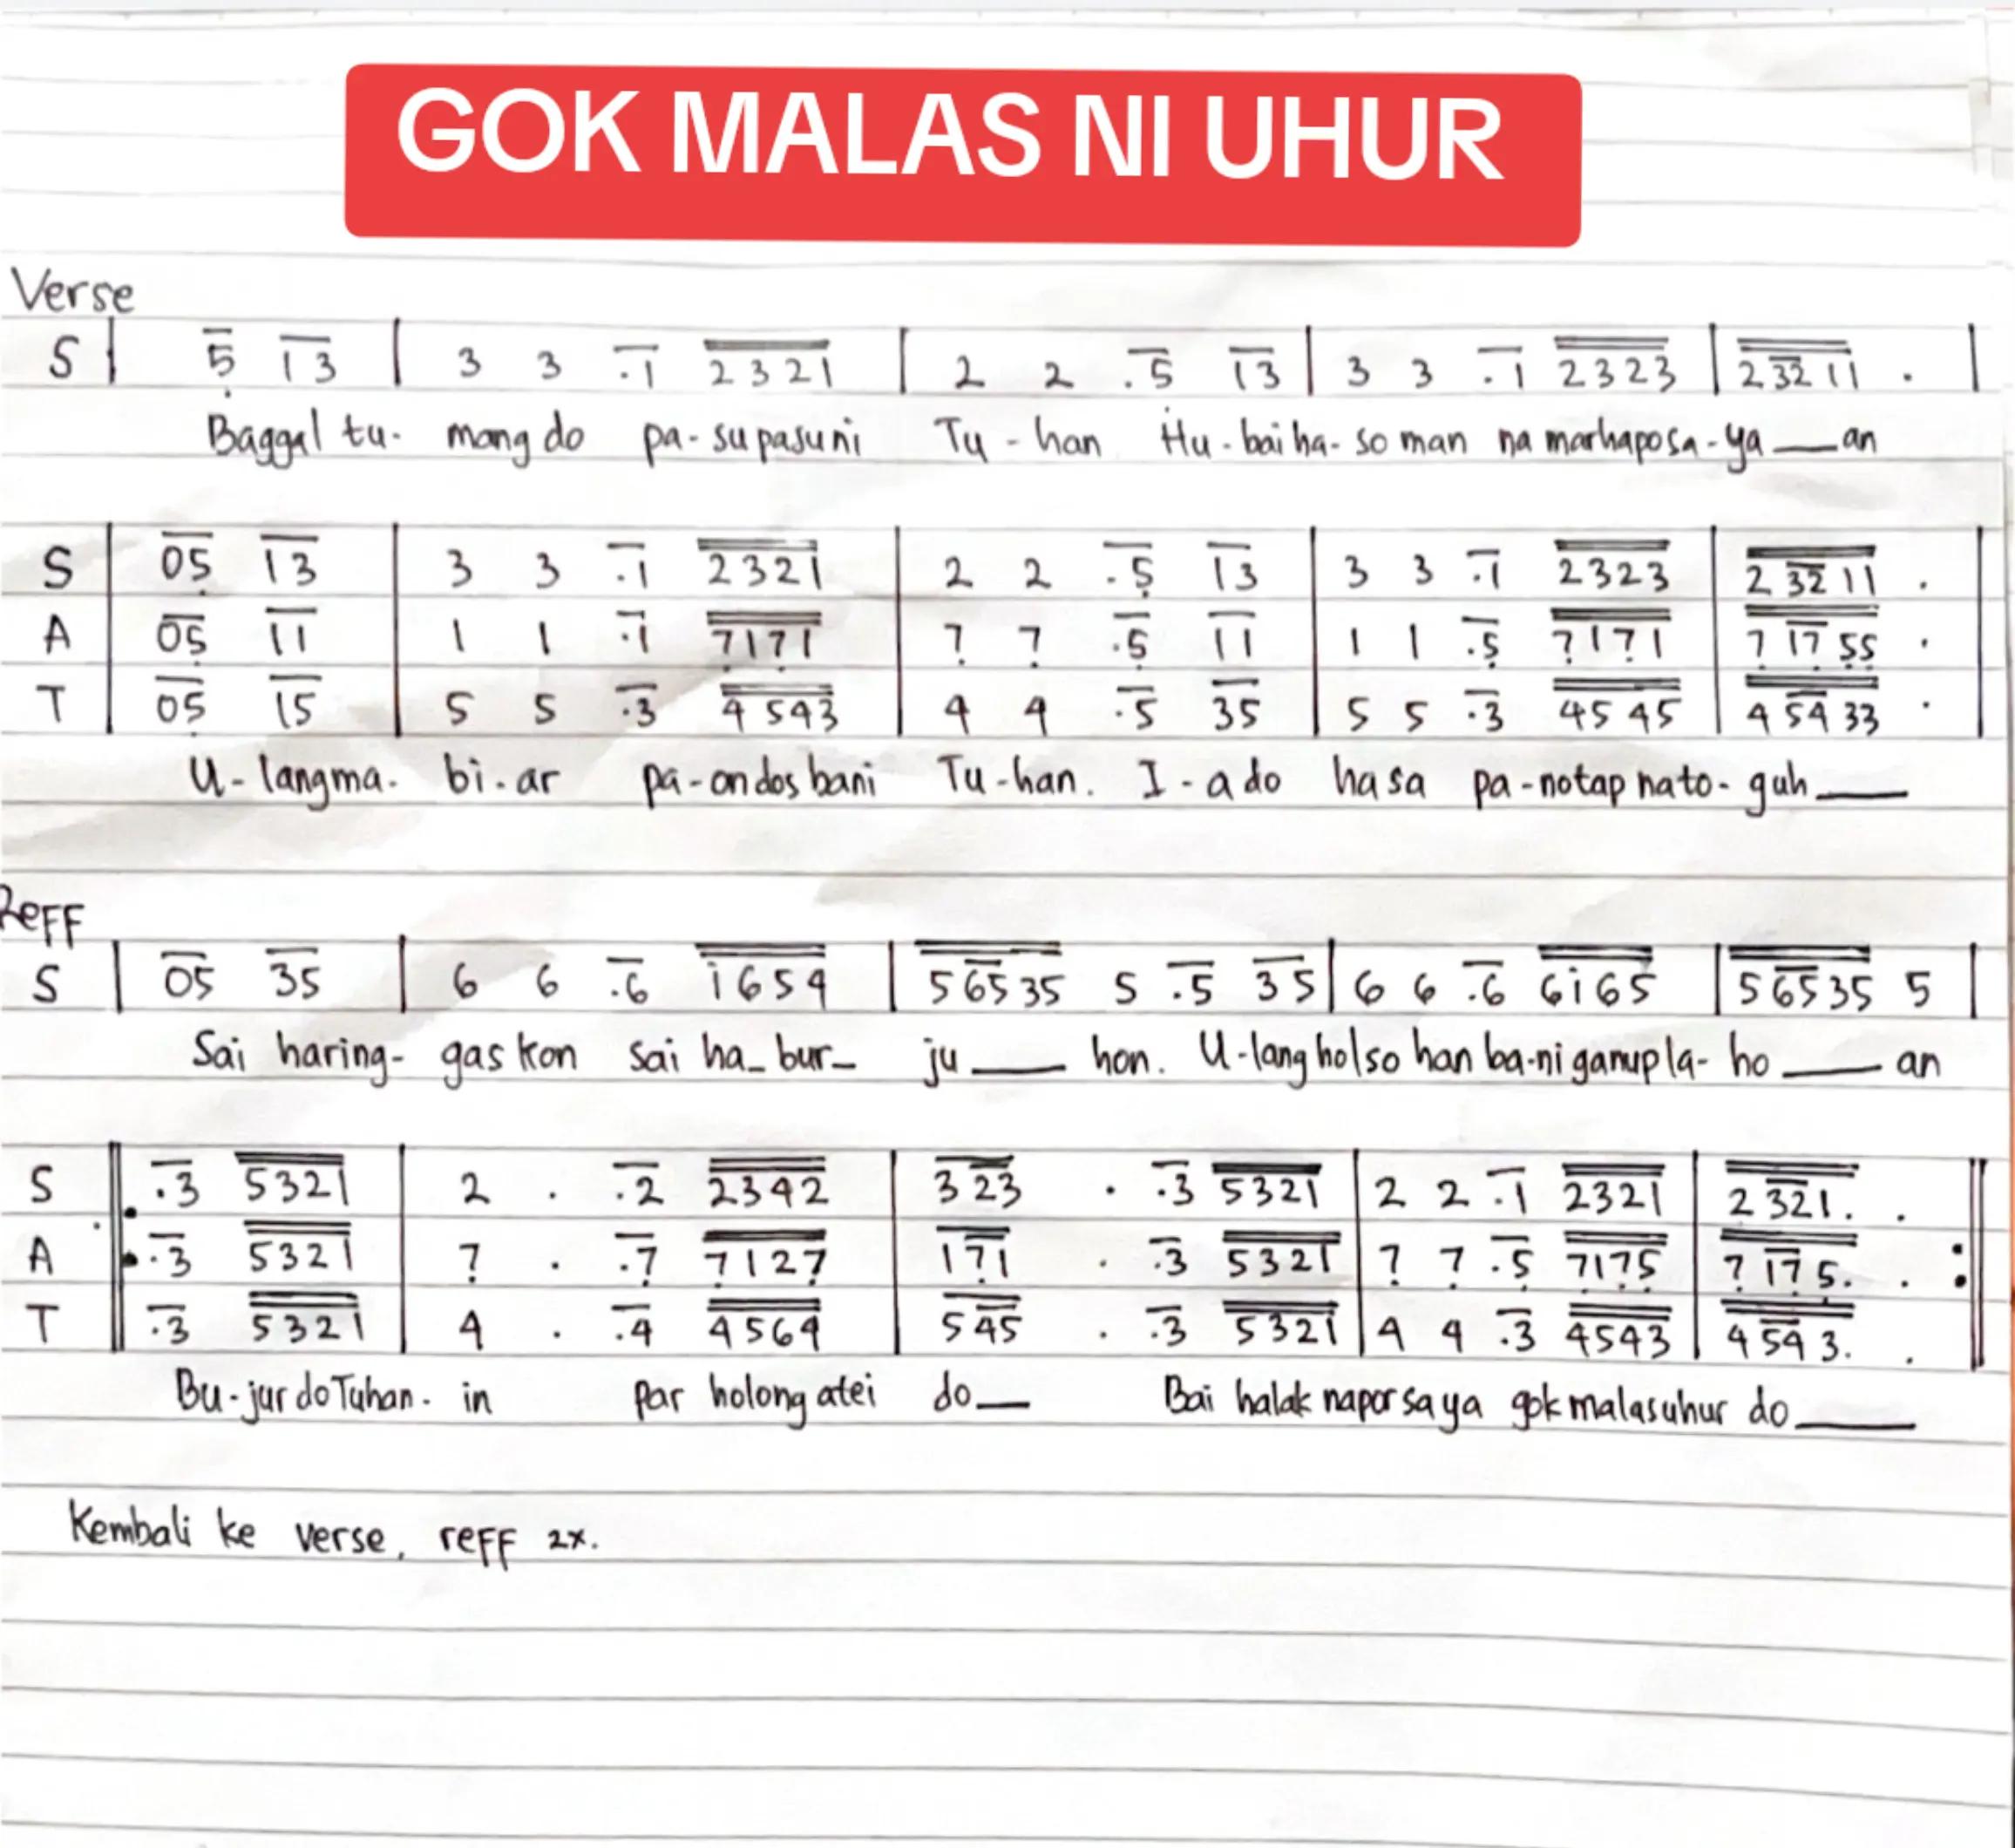 GOK MALAS NI UHUR
Verse
S | 5̣ 13 | 3 3 .1 2321 | 2 2 .5̣ 13 | 3 3 .1 2323 | 2 32 11 . |
Baggal tu- mang do pa-supasuni Tu-han Hu-bai ha-so man na marhaposa-ya__an
S | 05̣ 13 | 3 3 .1 2321 | 2 2 .5̣ 13 | 3 3 .1 2323 | 2 32 11 . |
A | 05̣ 11 | 1 1 .1 7̣17̣1 | 7̣ 7̣ .5̣ 11 | 1 1 .5̣ 7̣17̣1 | 7̣ 17̣ 5̣5̣ . |
T | 05̣ 15 | 5 5 .3 4543 | 4 4 .5 35 | 5 5 .3 4545 | 4 54 33 . |
U-langma- bi-ar pa-ondos bani Tu-han. I-a do ha sa pa-notap nato-guh__
Reff
S | 05 35 | 6 6 .6 i654 | 5 65 35 5 .5 35 | 6 6 .6 6i65 | 5 65 35 5 |
Sai haring- gas kon sai ha-bur- ju__hon. U-lang holso han ba-ni ganup la-ho__an
S ‖: .3 5321 | 2 . .2 2342 | 3 23 . .3 5321 | 2 2 .1 2321 | 2 321. . :‖
A ‖: .3 5321 | 7̣ . .7̣ 7̣127̣ | 1 7̣1 . .3 5321 | 7̣ 7̣ .5̣ 7̣17̣5̣ | 7̣ 17̣ 5̣. . :‖
T ‖: .3 5321 | 4 . .4 4564 | 5 45 . .3 5321 | 4 4 .3 4543 | 4 54 3. . :‖
Bu-jur do Tuhan- in par holong atei do__ Bai halak naporsaya gok malasuhur do__
Kembali ke verse, reff 2x.